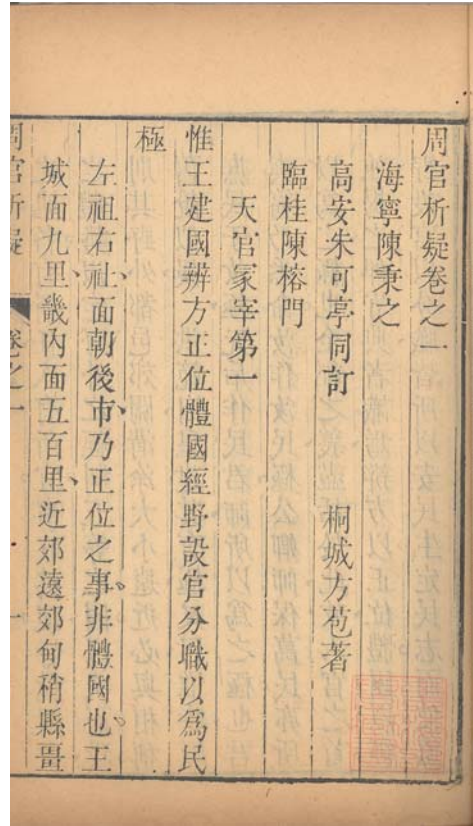 周官析疑卷之一
海寧陳秉之
高安朱可亭同訂 桐城方苞著
臨桂陳榕門
天官冢宰第一
惟王建國辨方正位體國經野設官分職以爲民
極
左祖右社、面朝後市、乃正位之事。非體國也。王
城面九里、畿內面五百里、近郊遠郊甸稍縣畺
周官析疑 卷之一 一